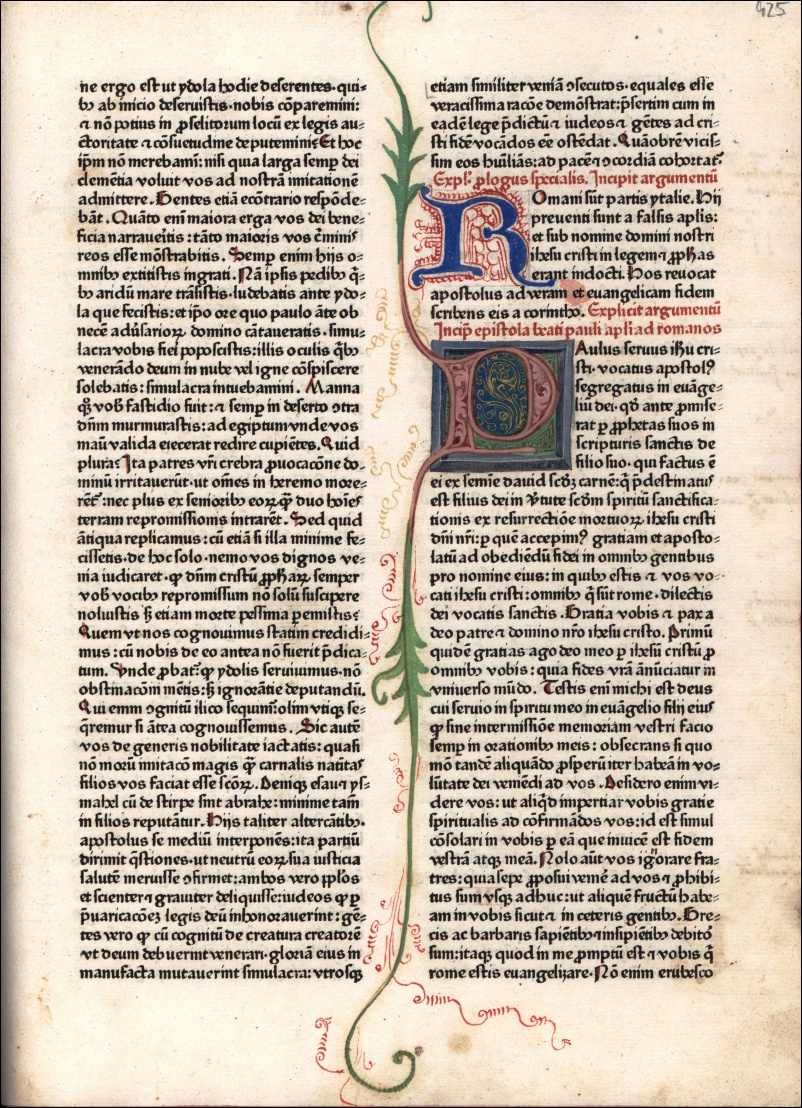 425
ne ergo est ut ydola hodie deserentes· qui⸗
bꝫ ab inicio deseruistis·nobis cōparemini:
⁊ nō potius in ꝓselitorum locū ex legis au⸗
ctoritate ⁊ cōsuetudine deputemini⸗ Et hoc
ip̄m nō merebamī: nisi quia larga semꝑ dei
clemētia voluit vos ad nostrā imitationē
admittere. Gentes etiā ecōtrario respōde⸗
bāt. Quāto em̄ maiora erga vos dei bene⸗
ficia narraueītis : tāto maioris vos c̄minis
reos esse mōstrabitis. Semꝑ enim hijs o⸗
mnibꝫ extitistis ingrati. Nā ipsis pedibꝫ q̄⸗
bꝫ aridū mare trāsistis·ludebatis ante ydo⸗
la que fecistis: et ip̄o ore quo paulo āte ob
necē aduīsarioꝝ domino cātaueratis· simu⸗
lacra vobis fiei poposcistis:illis oculis q̄bꝫ
venerādo deum in nube vel igne cōspiscere
solebatis: simulacra intuebamini. Manna
qꝫ vob̄ fastidio fuit: ⁊ semꝑ in deserto ↄtra
dn̄m murmurastis: ad egiptum vnde vos
manu valida eiecerat redire cupiētes. Quid
plura⸗ Ita patres vr̄i crebra ꝓuocacōne do⸗
minū irritauerūt· ut om̄es in heremo more⸗
rēt̄ :nec plus ex senioribꝫ eoꝝ qꝫ duo hoīes
terram repromissionis intrarēt. Sed quid
ātiqua replicamus : cū etiā si illa minime fe⸗
cissetis·de hoc solo·nemo vos dignos ve⸗
nia iudicaret · ꝙ dn̄m cristū ꝓph̄aꝝ semper
vob̄ vocibꝫ repromissum nō solū suscipere
noluistis sꝫ etiam morte pessima ꝑemistis⸗
Quem vt nos cognouimus statim credidi⸗
mus : cū nobis de eo antea nō fuerit p̄dica⸗
tum. Vnde ꝓbat̄ ꝙ ydolis seruiuimus·nō
obstinacōni mētis:sꝫ ignorātie deputandū.
Qui enim ↄgnitū ilico sequim̄:olim vtiqꝫ se⸗
q̄remur si ātea cognouissemus . Sic autē
vos de generis nobilitate iactatis: quasi
nō morū imitacō magis qꝫ carnalis natītas
filios vos faciat esse scōꝝ. Deniqꝫ esau ⁊ ys⸗
mahel cū de stirpe sint abrahe: minime tam̄
in filios reputātur. Hijs taliter altercātibꝫ·
apostolus se mediū interponēs:ita partiū
dirimit q̄stiones·ut neutrū eoꝝ sua iusticia
salutē meruisse ↄfirmet:ambos vero pp̄los
et scienter ⁊ grauiter deliquisse:iudeos ꝙ ꝑ
p̄uaricacōeꝫ legis deū inhonorauerint : gē⸗
tes vero ꝙ cū cognitū de creatura creatorē
vt deum debuerint venerari· gloriā eius in
manufacta mutauerint simulacra: vtrosqꝫ
etiam similiter veniā ↄsecutos·equales esse
veracissima racōe demōstrat:p̄sertim cum in
eadē lege p̄dictū ⁊ iudeos ⁊ gētes ad cri⸗
sti fidē vocādos eē ostēdat. Quāobrē vicis⸗
sim eos hūiliās:ad pacē ⁊ ↄcordiā cohortat̄.
Expl. ꝓlogus specialis. Incipit argumentū
Romani sūt partis ytalie. Hij
preuenti sunt a falsis aplis:
et sub nomine domini nostri
ihesu cristi in legem ⁊ ꝓph̄as
erant indocti. Hos reuocat
apostolus ad veram et euangelicam fidem
scribens eis a corintho. Explicit argumentū
Incip̄ epistola beati pauli apl̄i ad romanos
PAulus seruus ih̄u cri⸗
sti· vocatus apostolꝰ
segregatus in euāge⸗
liū dei· qd̄ ante ꝓmise⸗
rat ꝑ ꝓphetas suos in
scripturis sanctis de
filio suo· qui factus ē
ei ex semīe dauid scd̄ꝫ carnē:q̄ p̄destinatꝰ
est filius dei in v̄tute scd̄m spiritū sanctifica⸗
tionis ex resurrectiōe mortuoꝝ ihesu cristi
dn̄i nr̄i: ꝑ quē accepimꝰ gratiam et aposto⸗
latū ad obediēdū fidei in omnibꝫ gentibus
pro nomine eius: in quibꝫ estis ⁊ vos vo⸗
cati ihesu cristi: omnibꝫ q̄ sūt rome· dilectis
dei vocatis sanctis. Gratia vobis ⁊ pax a
deo patre ⁊ domino nr̄o ihesu cristo. Primū
quidē gratias ago deo meo ꝑ ihesū cristū ꝓ
omnibꝫ vobis : quia fides vr̄a ānūciatur in
vniuerso mūdo. Testis em̄ michi est deus
cui seruio in spiritu meo in euāgelio filij eius
ꝙ sine intermissiōe memoriam vestri facio
semꝑ in orationibꝫ meis : obsecrans si quo
mō tandē aliquādo ꝓsperū iter habeā in vo⸗
lūtate dei veniēdi ad vos . Desidero enim vi⸗
dere vos: ut aliqd̄ impertiar vobis gratie
spiritualis ad cōfirmādos vos:id est simul
cōsolari in vobis ꝑ eā que inuicē est fidem
vestrā atqꝫ meā. Nolo aūt vos ignorare fra⸗
tres: quia sepe ꝓposui venire ad vos ⁊ ꝓhibi⸗
tus sum vsqꝫ adhuc: ut aliquē fructū habe⸗
am in vobis sicut ⁊ in ceteris gentibꝫ. Gre⸗
cis ac barbaris sapiētibꝫ ⁊ insipiētibꝫ debitō
sum:itaqꝫ quod in me promptū est ⁊ vobis q̄
rome estis euangelizare. Nō enim erubesco